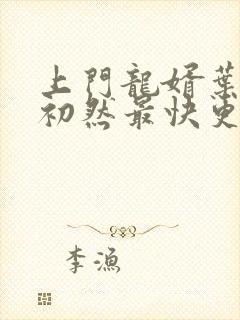 上門龍婿葉
初然最快更
李漁